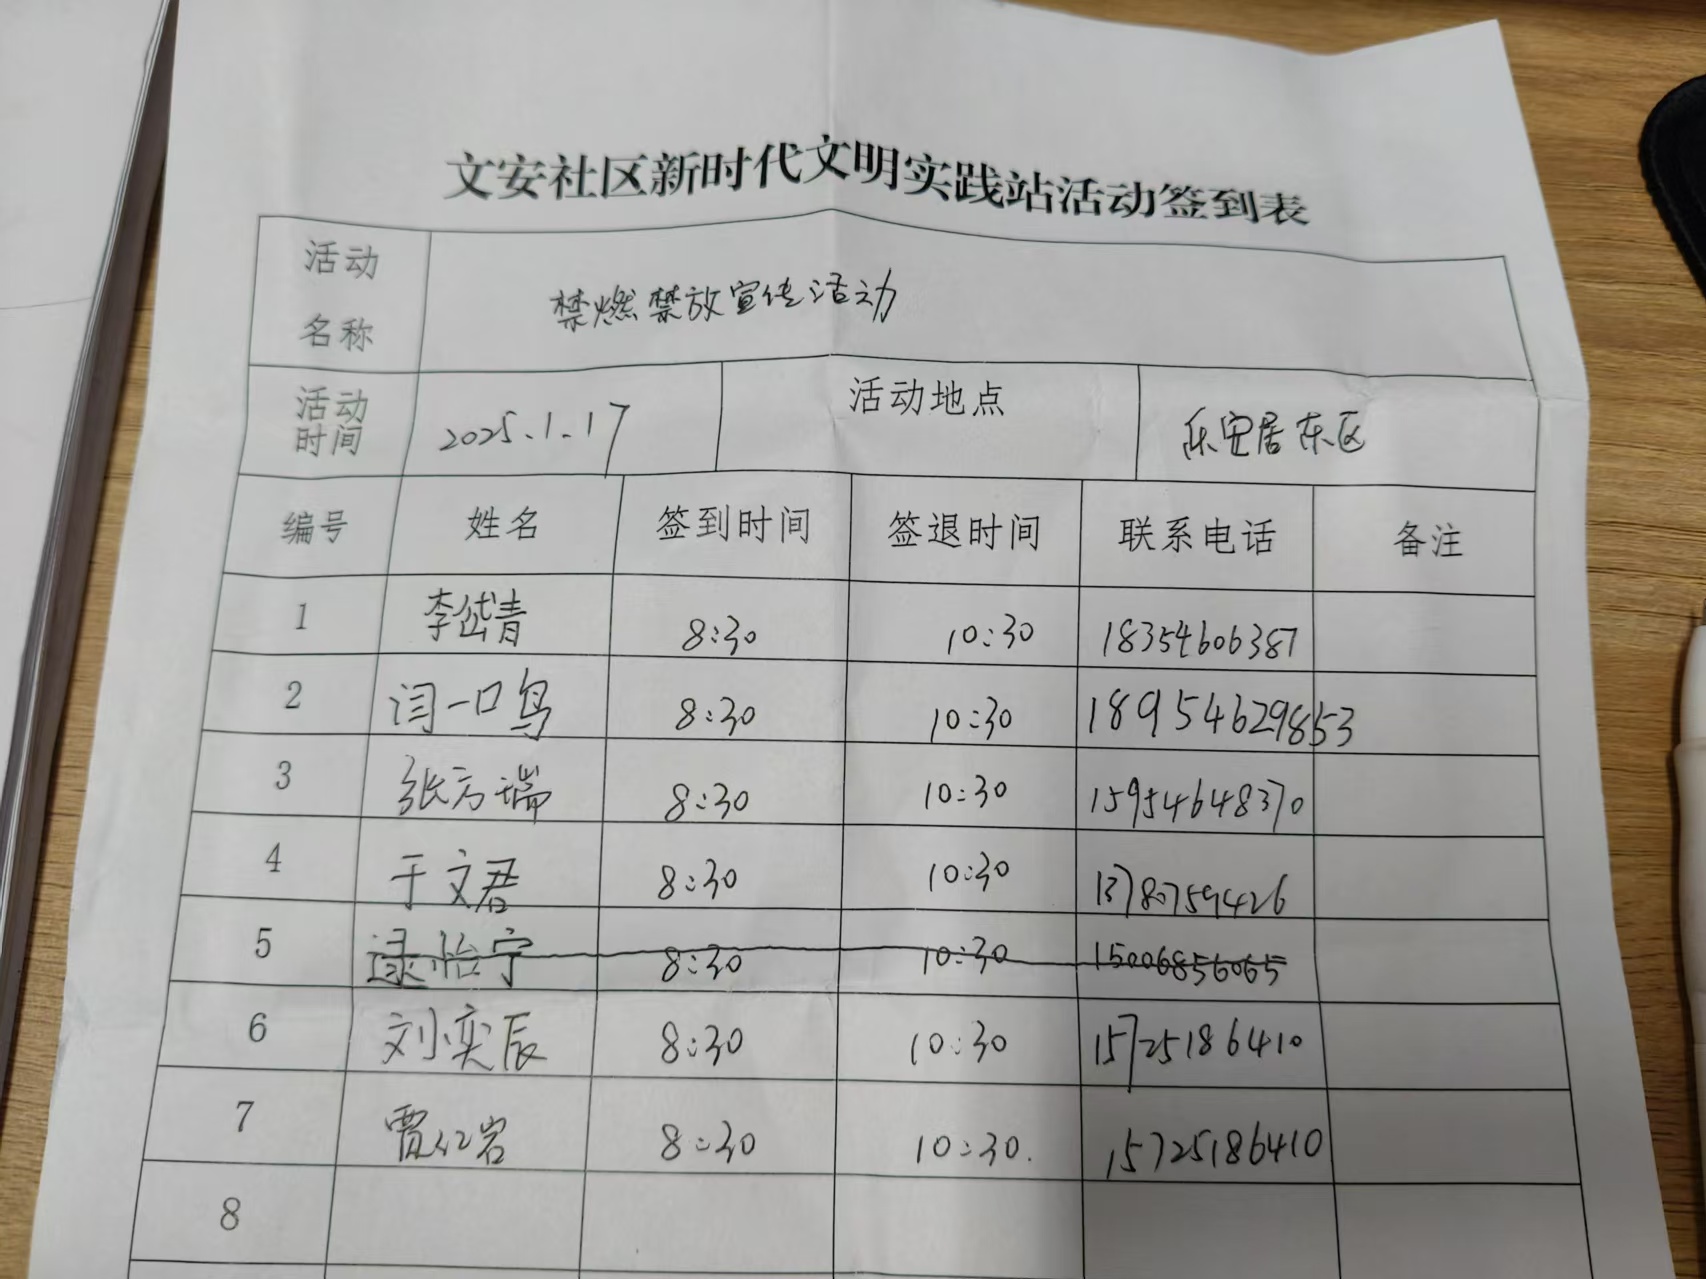 文安社区新时代文明实践站活动签到表
活动名称 禁燃禁放宣传活动
活动时间 2025.1.17 活动地点 乐安居东区
编号 姓名 签到时间 签退时间 联系电话 备注
1 李岱青 8:30 10:30 18354606387
2 闫一鸣 8:30 10:30 189546298853
3 张方瑞 8:30 10:30 15954648370
4 于文君 8:30 10:30 13780759426
5 逯怡宁 8:30 10:30 15006856065
6 刘奕辰 8:30 10:30 15725186410
7 贾仁岩 8:30 10:30. 15725186410
8